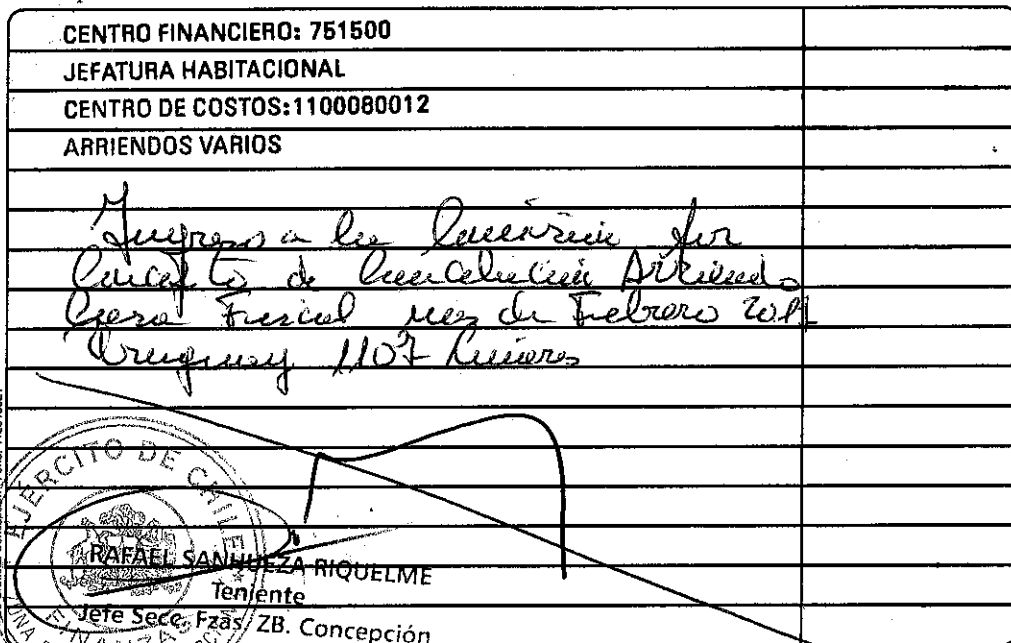 CENTRO FINANCIERO: 751500
JEFATURA HABITACIONAL
CENTRO DE COSTOS:1100080012
ARRIENDOS VARIOS
Ingreso a la Comisión por
Concepto de Cancelación Arriendo
Casa Fiscal mes de Febrero
Uruguay 1107 Linares
EJÉRCITO DE CHILE
RAFAEL SANHUEZA RIQUELME
Teniente
Jefe Secc. Fzas. ZB. Concepción
FINANZAS